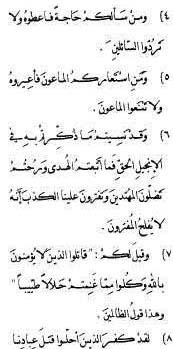 ٤) ومن سألكم حاجة فاعطوه ولا
تردوا السائلين .
٥) ومن استعاركم الماعون فأعيروه
ولا تمنعوا الماعون .
٦) وقد نسيتم ما ذكرتم به في
الإنجيل الحق فما أتبعتم الهدى ورحتم
تضلون المهتدين وتفترون علينا الكذب إنه
لا يفلح المفترون .
٧) وقيل لكم : " قاتلوا الذين لا يؤمنون
بالله وكلوا مما غنمتم حلالاً طيباً "
وهذا قول الظالمين .
٨) لقد كفر الذين أحلوا قتل عبادنا